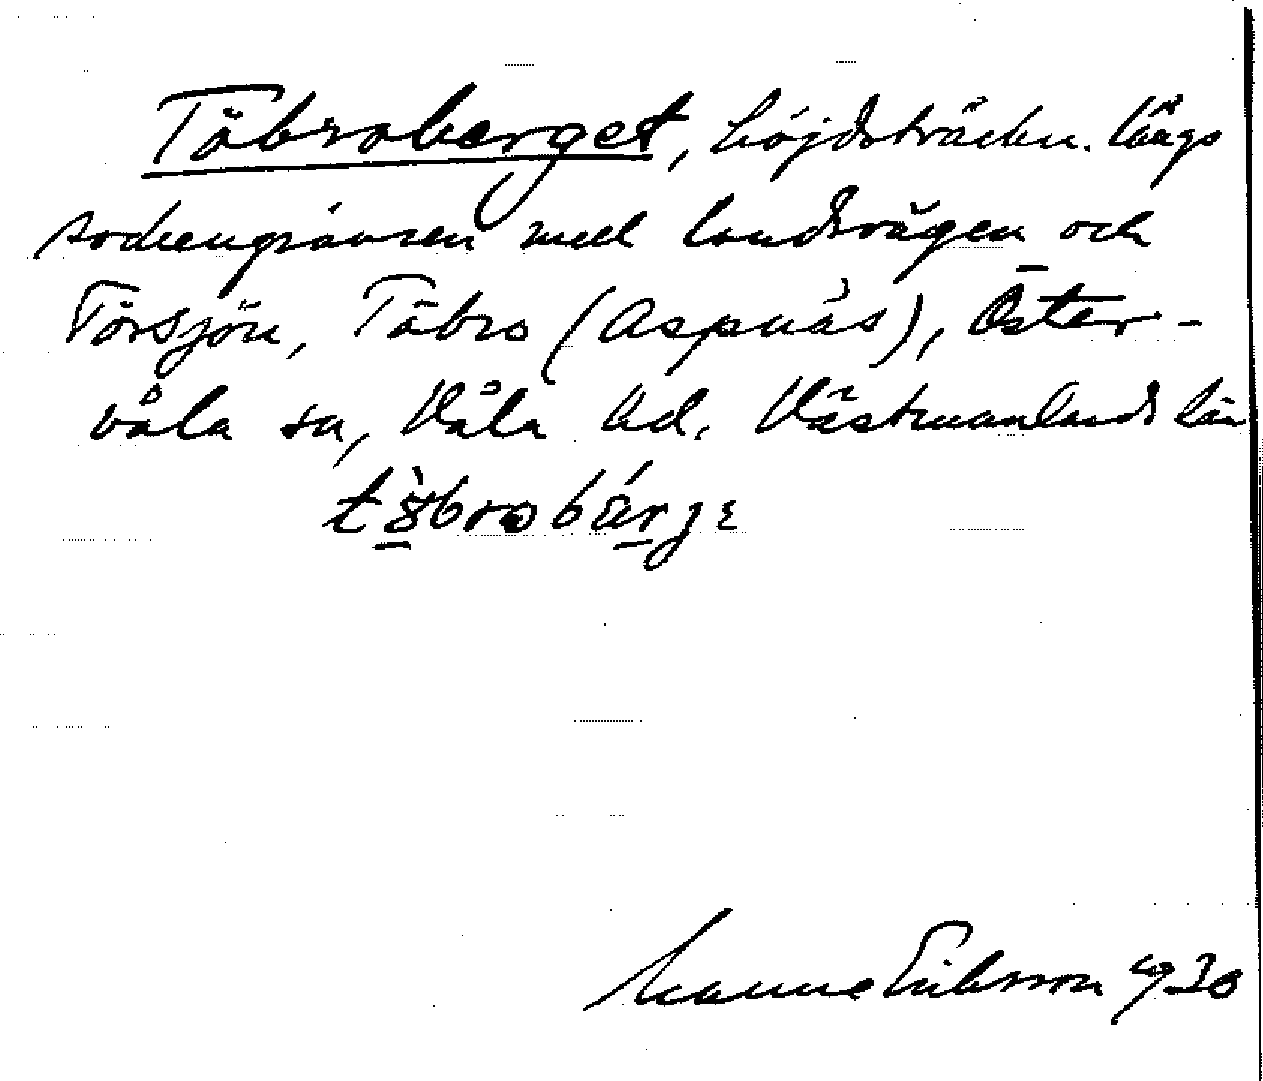 Täbroberget, höjdsträckn. längs
sockengränsen med landsvägen och
Törsjön, Täbro (Aspnäs), Öster-
våla sn, Våla hd. Västmanlands län
Manne Eriksson 1930